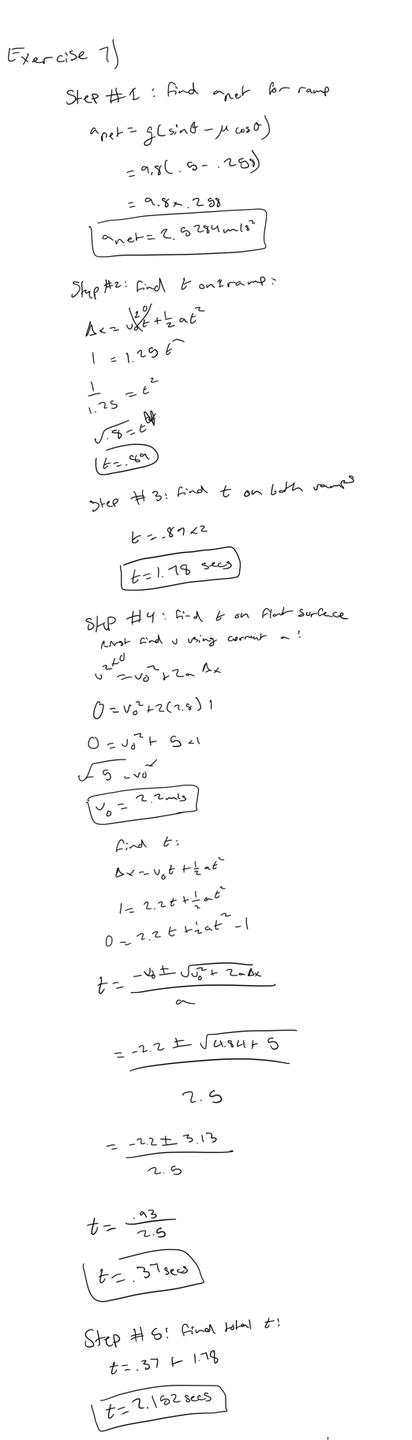 Exercise 7)
Step #1: find anet for ramp
anet = g(sinθ - μcosθ)
= 9.8(.5 - .258)
= 9.8 × .258
anet = 2.5284 m/s²
Step #2: find t on 1 ramp:
Δx = v₀t + ½at²
1 = 1.25 t²
1/1.25 = t²
√.8 = t
t = .89
Step #3: find t on both ramps
t = .89 × 2
t = 1.78 secs
Step #4: find t on flat surface
must find v using current a:
v² = v₀² + 2aΔx
0 = v₀² + 2(2.5)1
0 = v₀² + 5 × 1
√5 = v₀²
v₀ = 2.2 m/s
find t:
Δx = v₀t + ½at²
1 = 2.2t + ½at²
0 = 2.2t + ½at² - 1
t = (-v₀ ± √(v₀² + 2aΔx)) / a
= (-2.2 ± √(4.84 + 5)) / 2.5
= (-2.2 ± 3.13) / 2.5
t = .93/2.5
t = .37 secs
Step #5: find total t:
t = .37 + 1.78
t = 2.152 secs